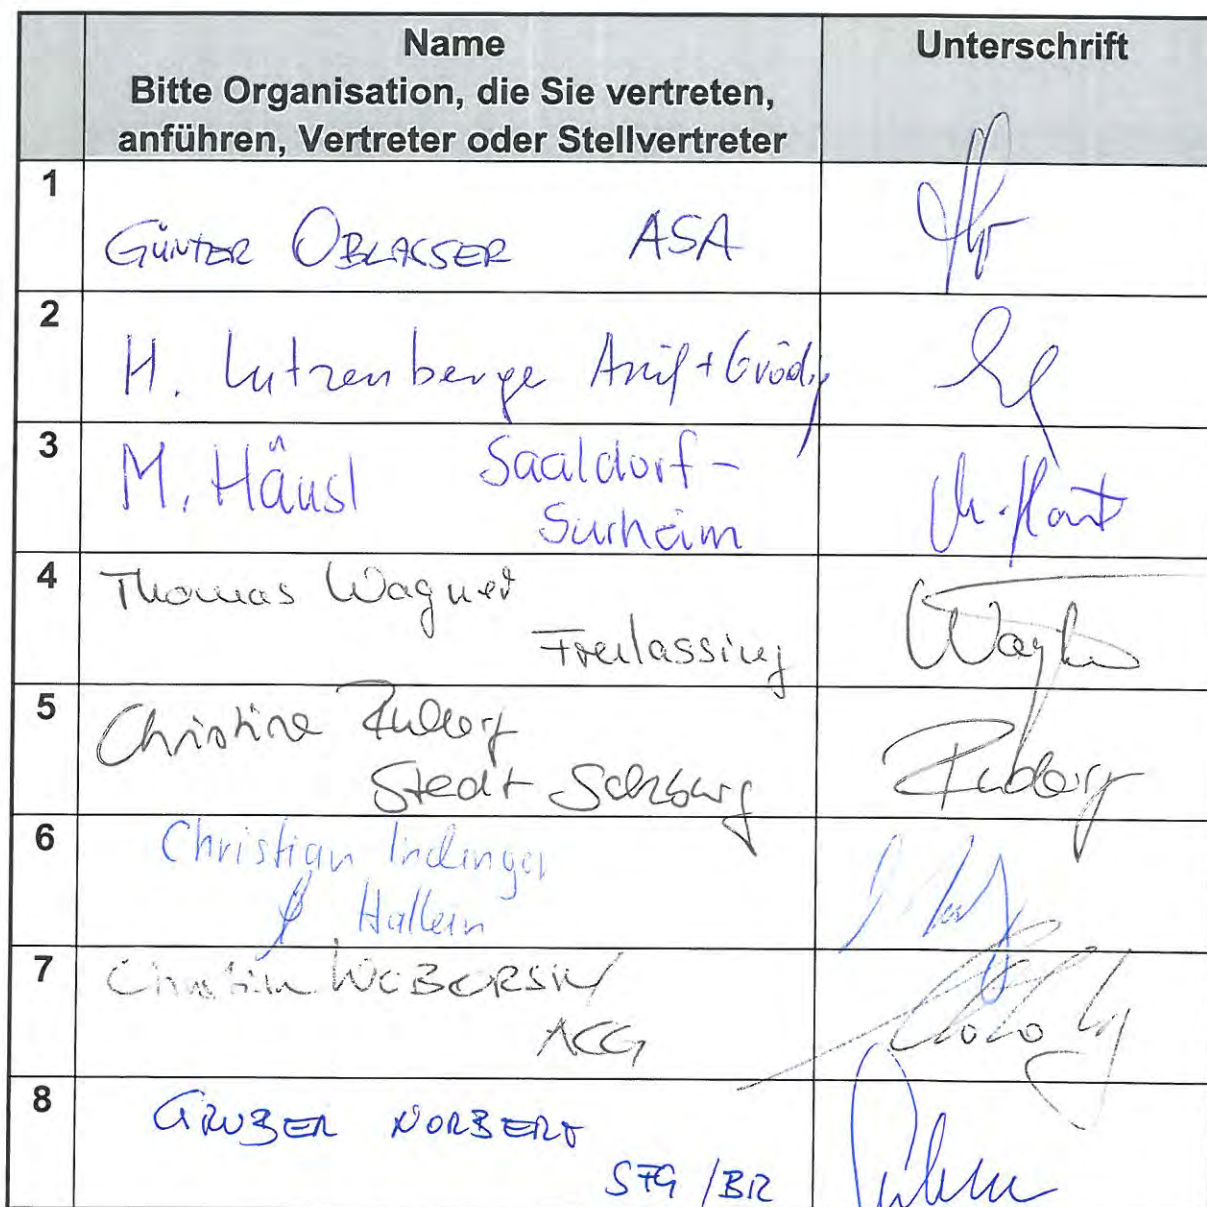 Name
Unterschrift
Bitte Organisation, die Sie vertreten,
anführen, Vertreter oder Stellvertreter
1
GÜNTER OBLASSER ASA
2
H. Lutzenberge Anif + Grödig
3
M. Häusl Saaldorf-
Surheim
4
Thomas Wagner
Freilassing
Wagner
5
Christine
Stadt Salzburg
6
Christian Indinger
Hallein
7
Christian WOBORSKY
ACG
8
GRUBER NORBERT
SFG / BR